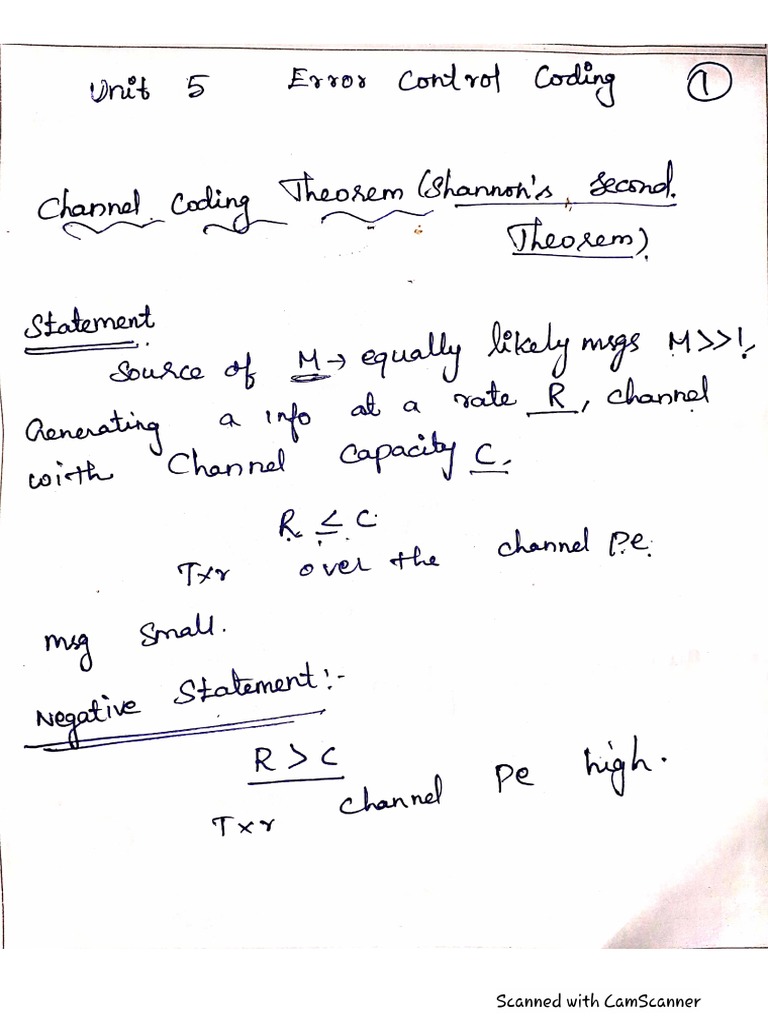 Unit 5 Error Control Coding 1
Channel Coding Theorem (Shannon's Second
Theorem)
Statement
Source of M → equally likely msgs M>>1,
Generating a info at a rate R, channel
with Channel capacity C.
R ≤ C
Txr over the channel Pe
msg small.
Negative Statement:-
R > C
Txr channel Pe high.
Scanned with CamScanner